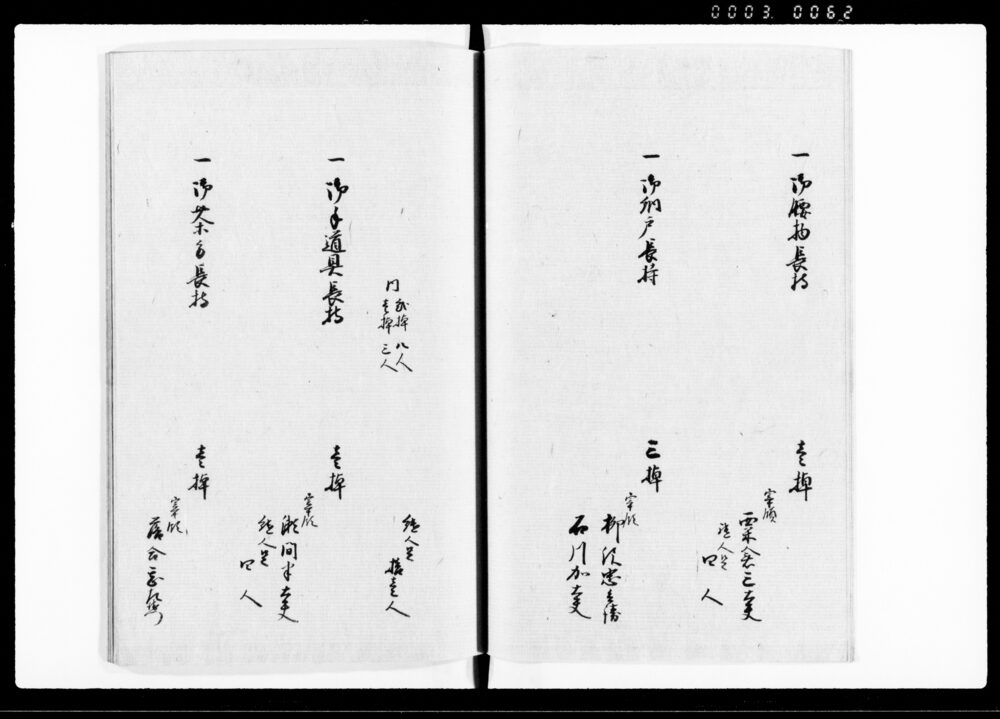 0003 0062
一御腰物長持
壱棹
宰領
粟倉三太夫
持人足
四人
一御納戸長持
三棹
宰領
柳沢忠兵衛
石川加太夫
内
弐棹 八人
壱棹 三人
持人足
拾壱人
一御手道具長持
壱棹
宰領
間半太夫
持人足
四人
一御茶方長持
壱棹
宰領
落合